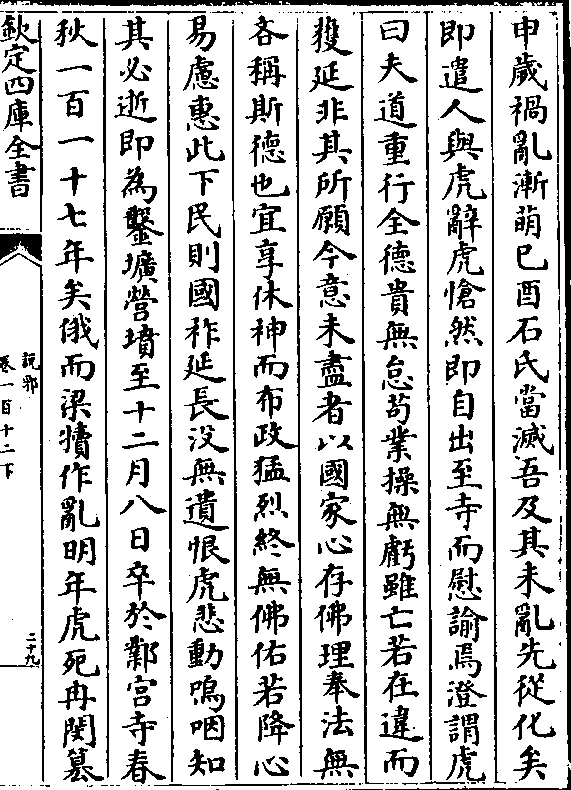 申歲禍亂漸萌已酉石氏當滅吾及其未亂先從化矣
即遣人與虎辭虎愴然即自出至寺而慰諭焉澄謂虎
曰夫道重行全德貴無怠苟業操無虧雖亡若在違而
獲延非其所願今意未盡者以國家心存佛理奉法無
吝稱斯德也宜享休神而布政猛烈終無佛佑若降心
易慮惠此下民則國祚延長没無遺恨虎悲動嗚咽知
其必逝即為鑿壙營墳至十二月八日卒於鄴宮寺春
秋一百一十七年矣俄而梁犢作亂明年虎死冉閔簒
欽定四庫全書
說郛
卷一百十二下
二十九